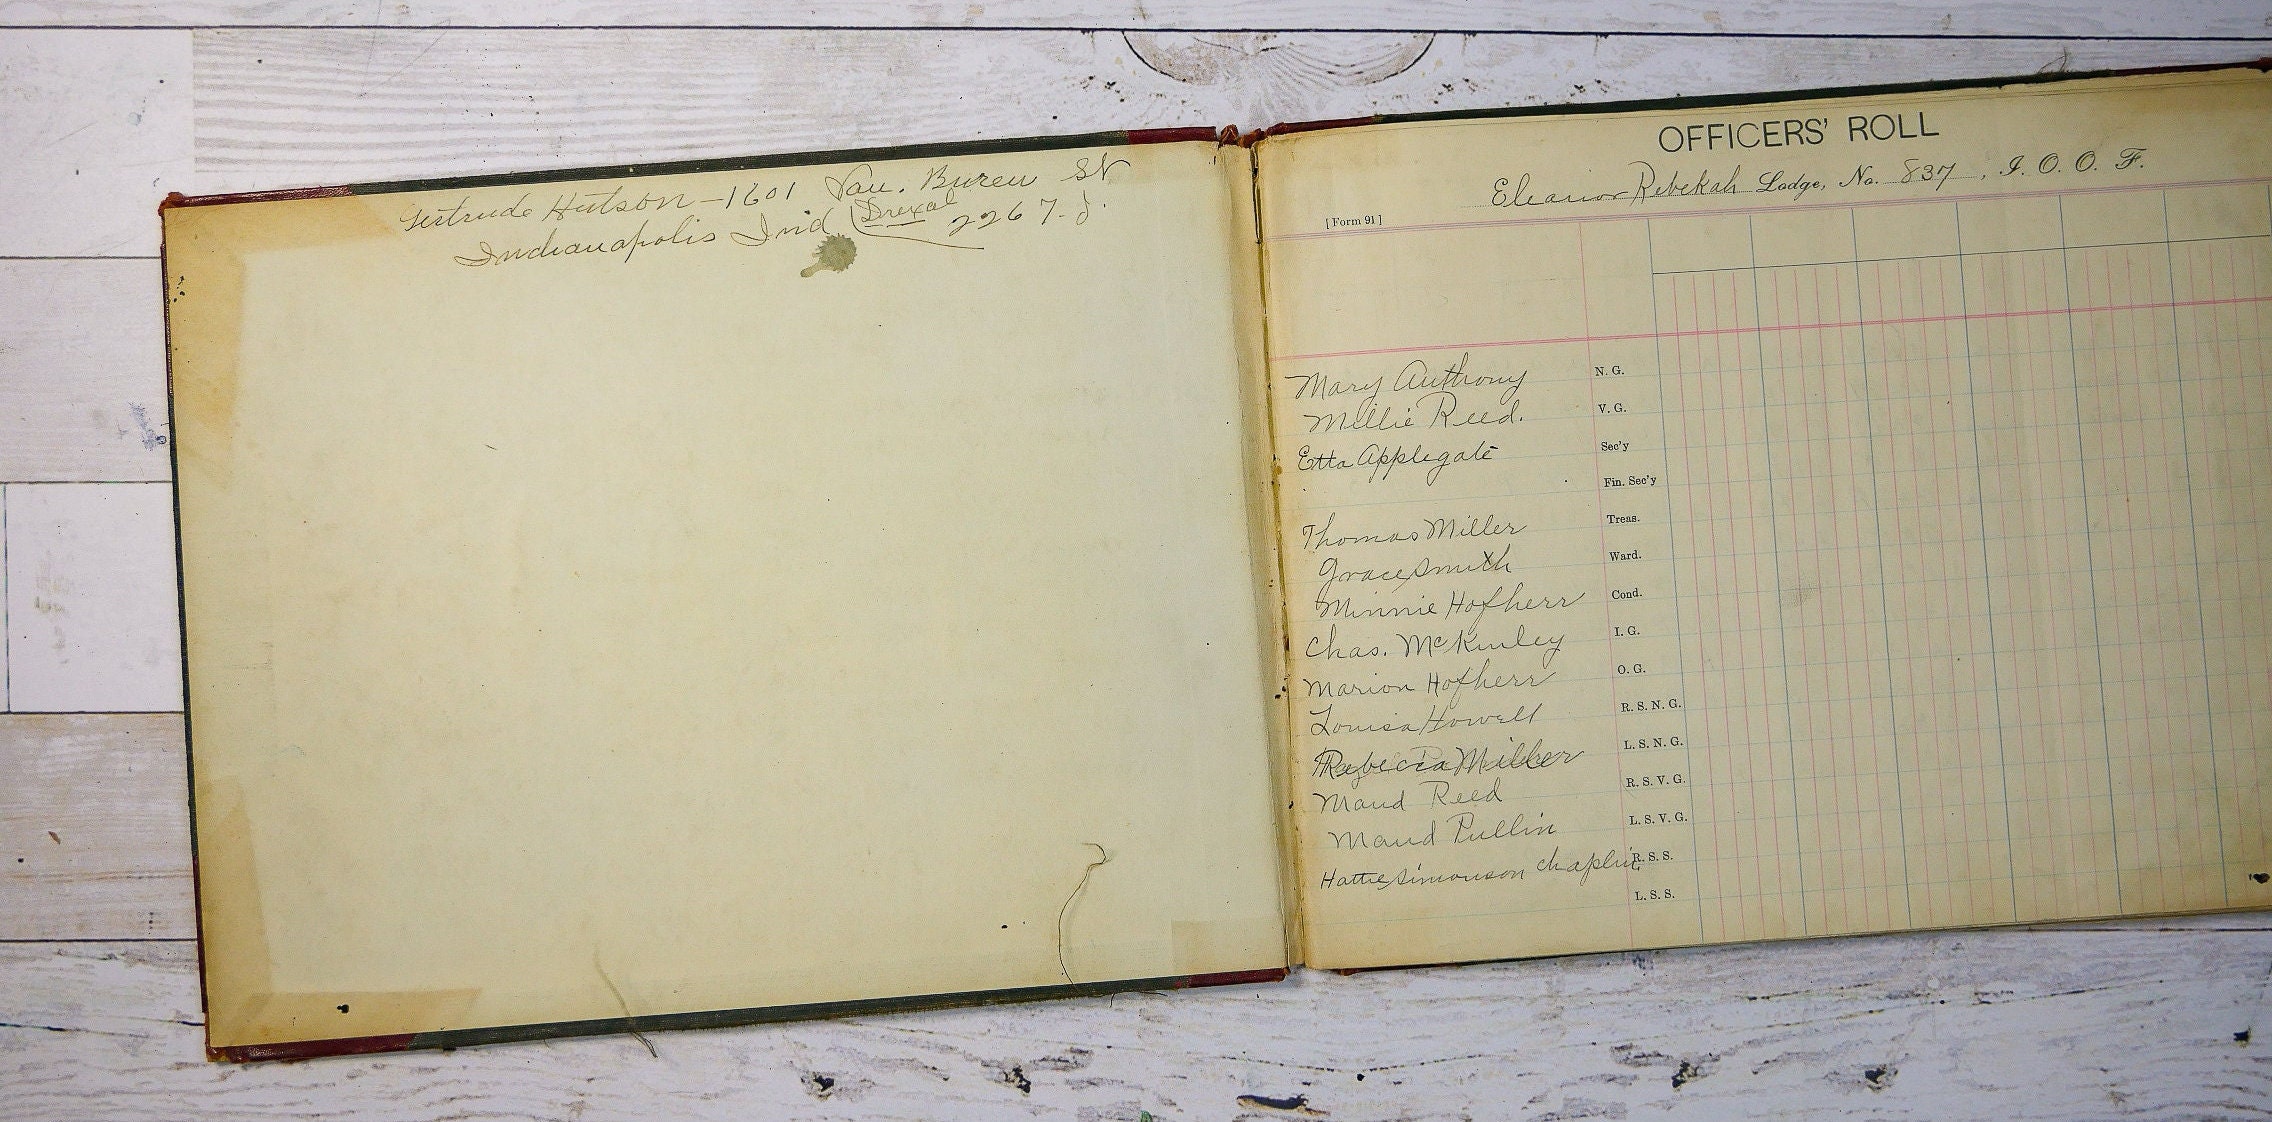 Gertrude Hutson - 1601 Van. Buren St
Indianapolis Ind Drexal 2267-J.
OFFICERS' ROLL
Eleanor Rebekah Lodge, No. 837, I. O. O. F.
[Form 91]
Mary Anthony N. G.
Millie Reed. V. G.
Etta Applegate Sec'y
Fin. Sec'y
Thomas Miller Treas.
Grace Smith Ward.
Minnie Hofherr Cond.
Chas. McKinley I. G.
Marion Hofherr O. G.
Louisa Howell R. S. N. G.
Rebecca Miller L. S. N. G.
Maud Reed R. S. V. G.
Maud Pullin L. S. V. G.
Hattie Simonson R. S. S.
L. S. S.